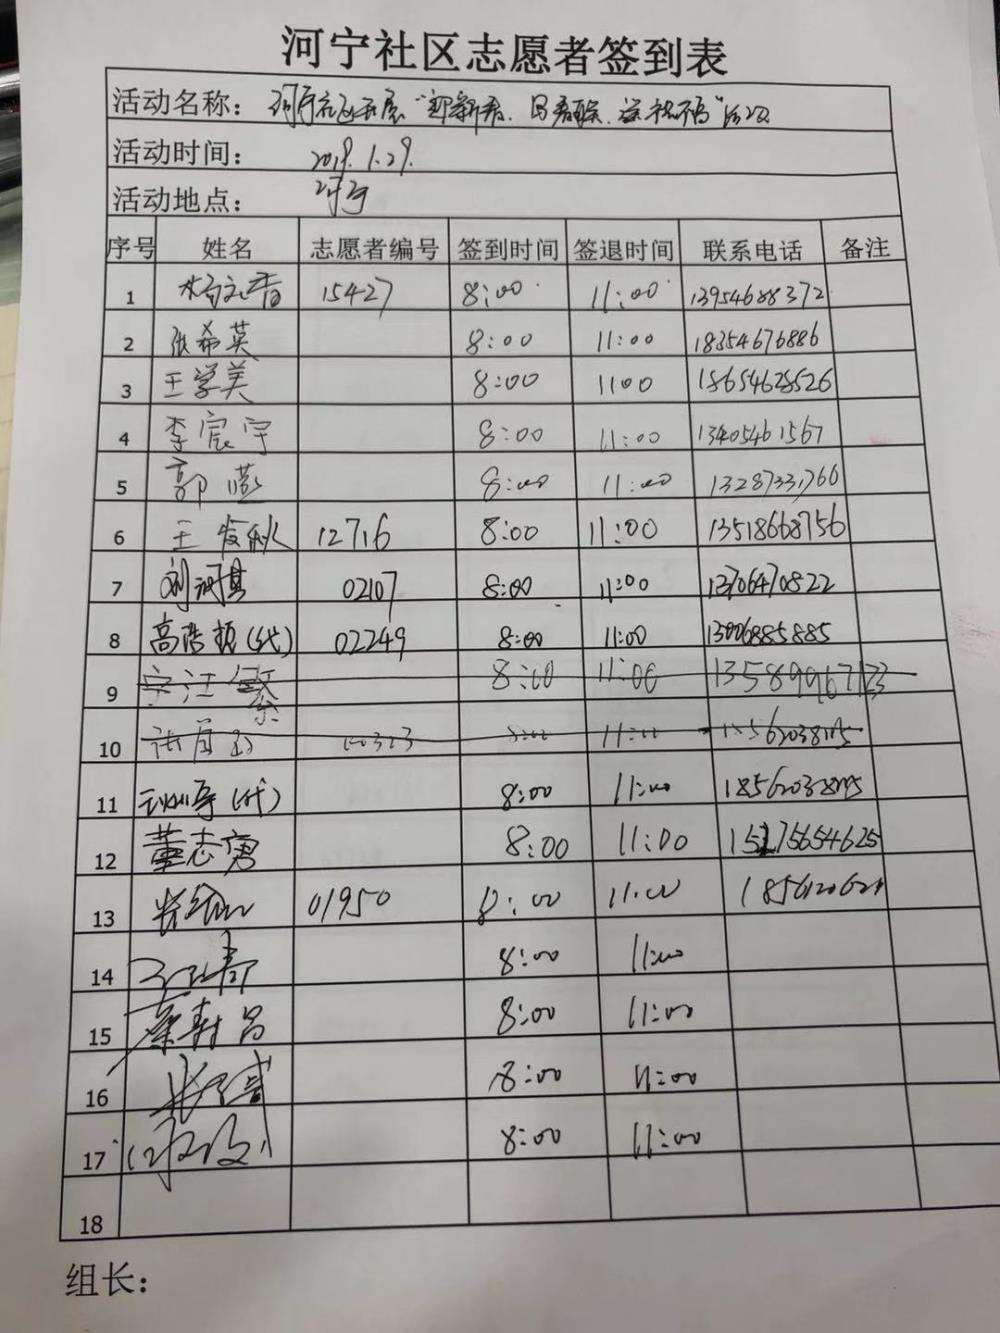 河宁社区志愿者签到表
活动名称：河宁社区开展"迎新春、写春联、送祝福"活动
活动时间：2019.1.29.
活动地点：河宁
序号 姓名 志愿者编号 签到时间 签退时间 联系电话 备注
1 杨文香 15427 8:00 11:00 13954688372
2 张希英 8:00 11:00 18354676886
3 王学美 8:00 1100 18654628526
4 李宸宇 8:00 11:00 13405461567
5 郭 8:00 11:00 13287331760
6 王发秋 12716 8:00 11:00 13518668756
7 刘河其 02107 8:00 11:00 13706470822
8 高浩桓(代) 02249 8:00 11:00 13006885885
9 8:00 11:00 13589996733
10 8:00 11:00
11 (代) 8:00 11:00
12 董志勇 8:00 11:00 15275654625
13 01950 8:00 11:00
14 8:00 11:00
15 秦寿昌 8:00 11:00
16 8:00 11:00
17 8:00 11:00
18
组长：